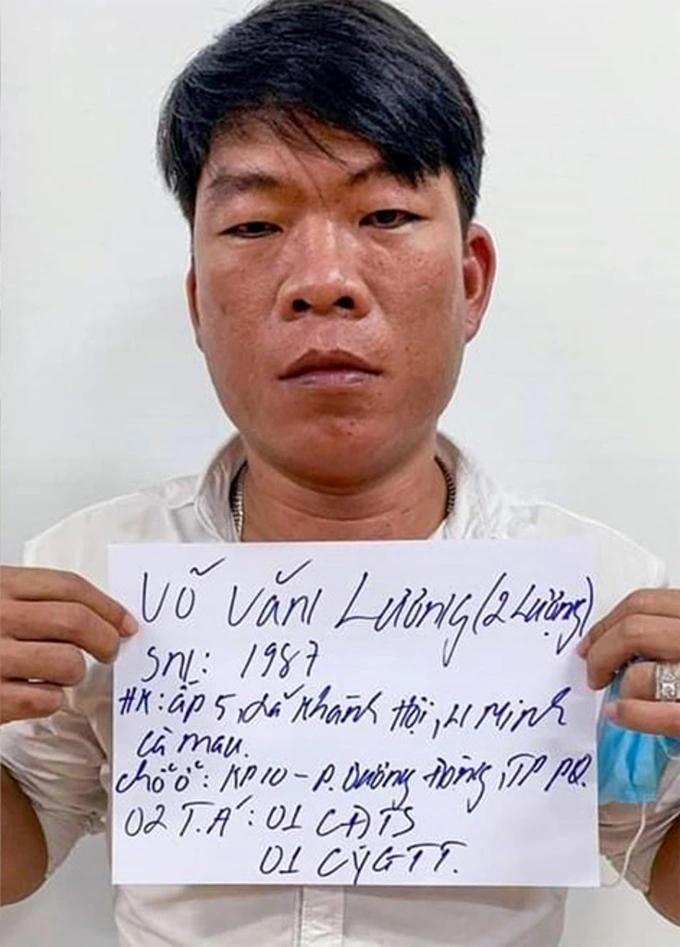 Võ Văn Lương (2 Lượng)
SNL: 1987
HK: ấp 5, xã Khánh Hội, U Minh
Cà Mau.
Chỗ ở: KP10 - P. Dương Đông, TP PQ.
02 T.A: 01 CĐTS
01 CYGTT.